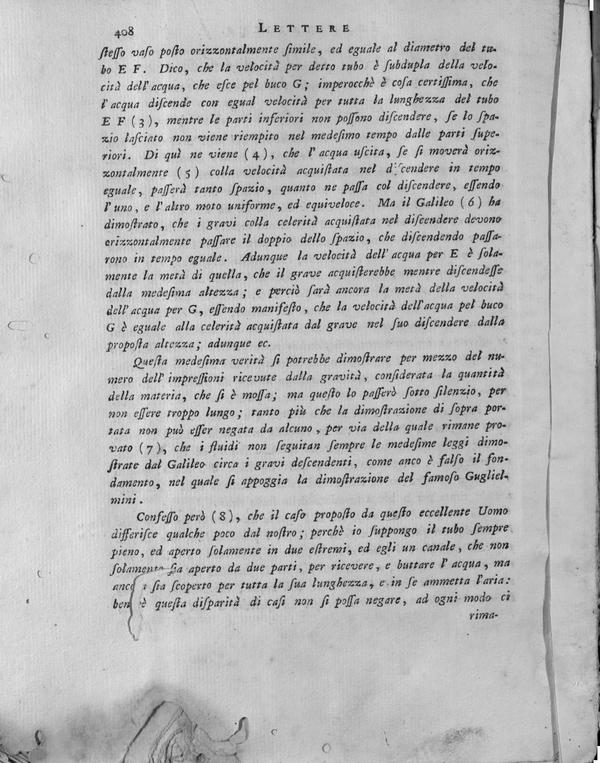 408 LETTERE
ſteſſo vaſo poſto orizzontalmente ſimile, ed eguale al diametro del tu-
bo E F. Dico, che la velocità per detto tubo è ſubdupla della velo-
cità dell'acqua, che eſce pel buco G; imperocchè è coſa certiſſima, che
l'acqua diſcende con egual velocità per tutta la lunghezza del tubo
E F (3), mentre le parti inferiori non poſſono diſcendere, ſe lo ſpa-
zio laſciato non viene riempito nel medeſimo tempo dalle parti ſupe-
riori. Di quì ne viene (4), che l'acqua uſcita, ſe ſi moverà oriz-
zontalmente (5) colla velocità acquiſtata nel diſcendere in tempo
eguale, paſſerà tanto ſpazio, quanto ne paſſa col diſcendere, eſſendo
l'uno, e l'altro moto uniforme, ed equiveloce. Ma il Galileo (6) ha
dimoſtrato, che i gravi colla celerità acquiſtata nel diſcendere devono
orizzontalmente paſſare il doppio dello ſpazio, che diſcendendo paſſa-
rono in tempo eguale. Adunque la velocità dell'acqua per E è ſola-
mente la metà di quella, che il grave acquiſterebbe mentre diſcendeſſe
dalla medeſima altezza; e perciò ſarà ancora la metà della velocità
dell'acqua per G, eſſendo manifeſto, che la velocità dell'acqua pel buco
G è eguale alla celerità acquiſtata dal grave nel ſuo diſcendere dalla
propoſta altezza; adunque ec.
Queſta medeſima verità ſi potrebbe dimoſtrare per mezzo del nu-
mero dell'impreſſioni ricevute dalla gravità, conſiderata la quantità
della materia, che ſi è moſſa; ma queſto lo paſſerò ſotto ſilenzio, per
non eſſere troppo lungo; tanto più che la dimoſtrazione di ſopra por-
tata non può eſſer negata da alcuno, per via della quale rimane pro-
vato (7), che i fluidi non ſeguitan ſempre le medeſime leggi dimo-
ſtrate dal Galileo circa i gravi deſcendenti, come anco è falſo il fon-
damento, nel quale ſi appoggia la dimoſtrazione del famoſo Gugliel-
mini.
Confeſſo però (8), che il caſo propoſto da queſto eccellente Uomo
differiſce qualche poco dal noſtro; perchè io ſuppongo il tubo ſempre
pieno, ed aperto ſolamente in due eſtremi, ed egli un canale, che non
ſolamente ſia aperto da due parti, per ricevere, e buttare l'acqua, ma
ſia ſcoperto per tutta la ſua lunghezza, e in ſe ammetta l'aria:
è queſta diſparità di caſi non ſi poſſa negare, ad ogni modo ci
rima-